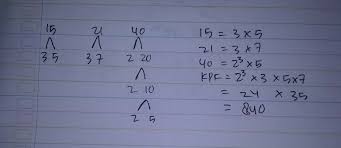 15 21 40
3 5 3 7 2 20
2 10
2 5
15 = 3 × 5
21 = 3 × 7
40 = 2³ × 5
KPK = 2³ × 3 × 5 × 7
= 24 × 35
= 840